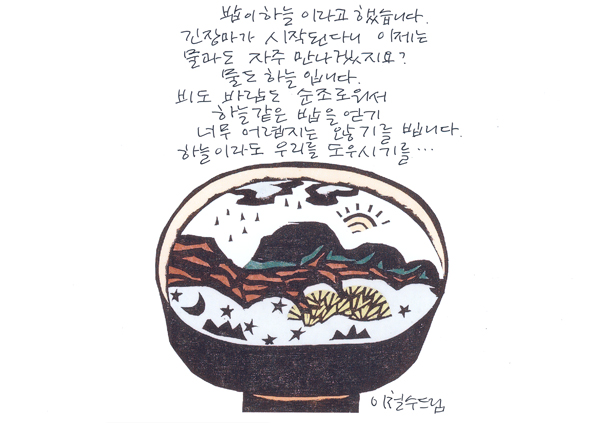 밥이 하늘 이라고 했습니다.
긴장마가 시작된다니 이제는
물과도 자주 만나겠지요?
물도 하늘 입니다.
비도 바람도 순조로워서
하늘같은 밥을 얻기
너무 어렵지는 않기를 빕니다.
하늘이라도 우리를 도우시기를…
이철수드림